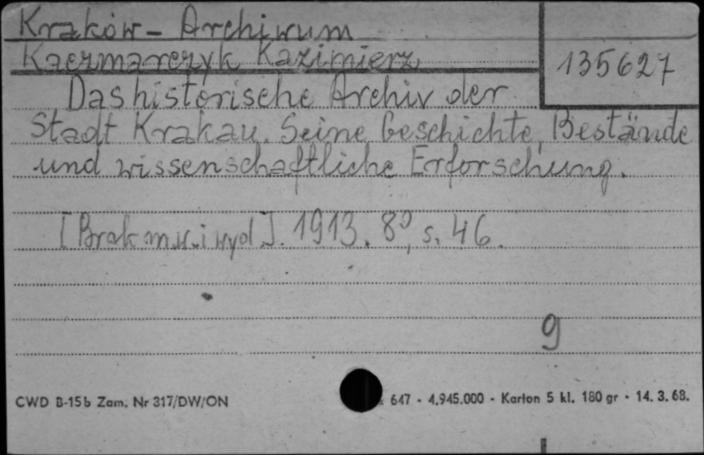 Kraków - Archiwum
Kaczmarczyk Kazimierz
135627
Das historische Archiv der
Stadt Krakau. Seine Geschichte, Bestände
und wissenschaftliche Erforschung.
[Brak m.w. i wyd]. 1913. 8°, s. 46.
9
CWD B-15b Zam. Nr 317/DW/ON
647 - 4.945.000 - Karton 5 kl. 180 gr - 14. 3. 68.